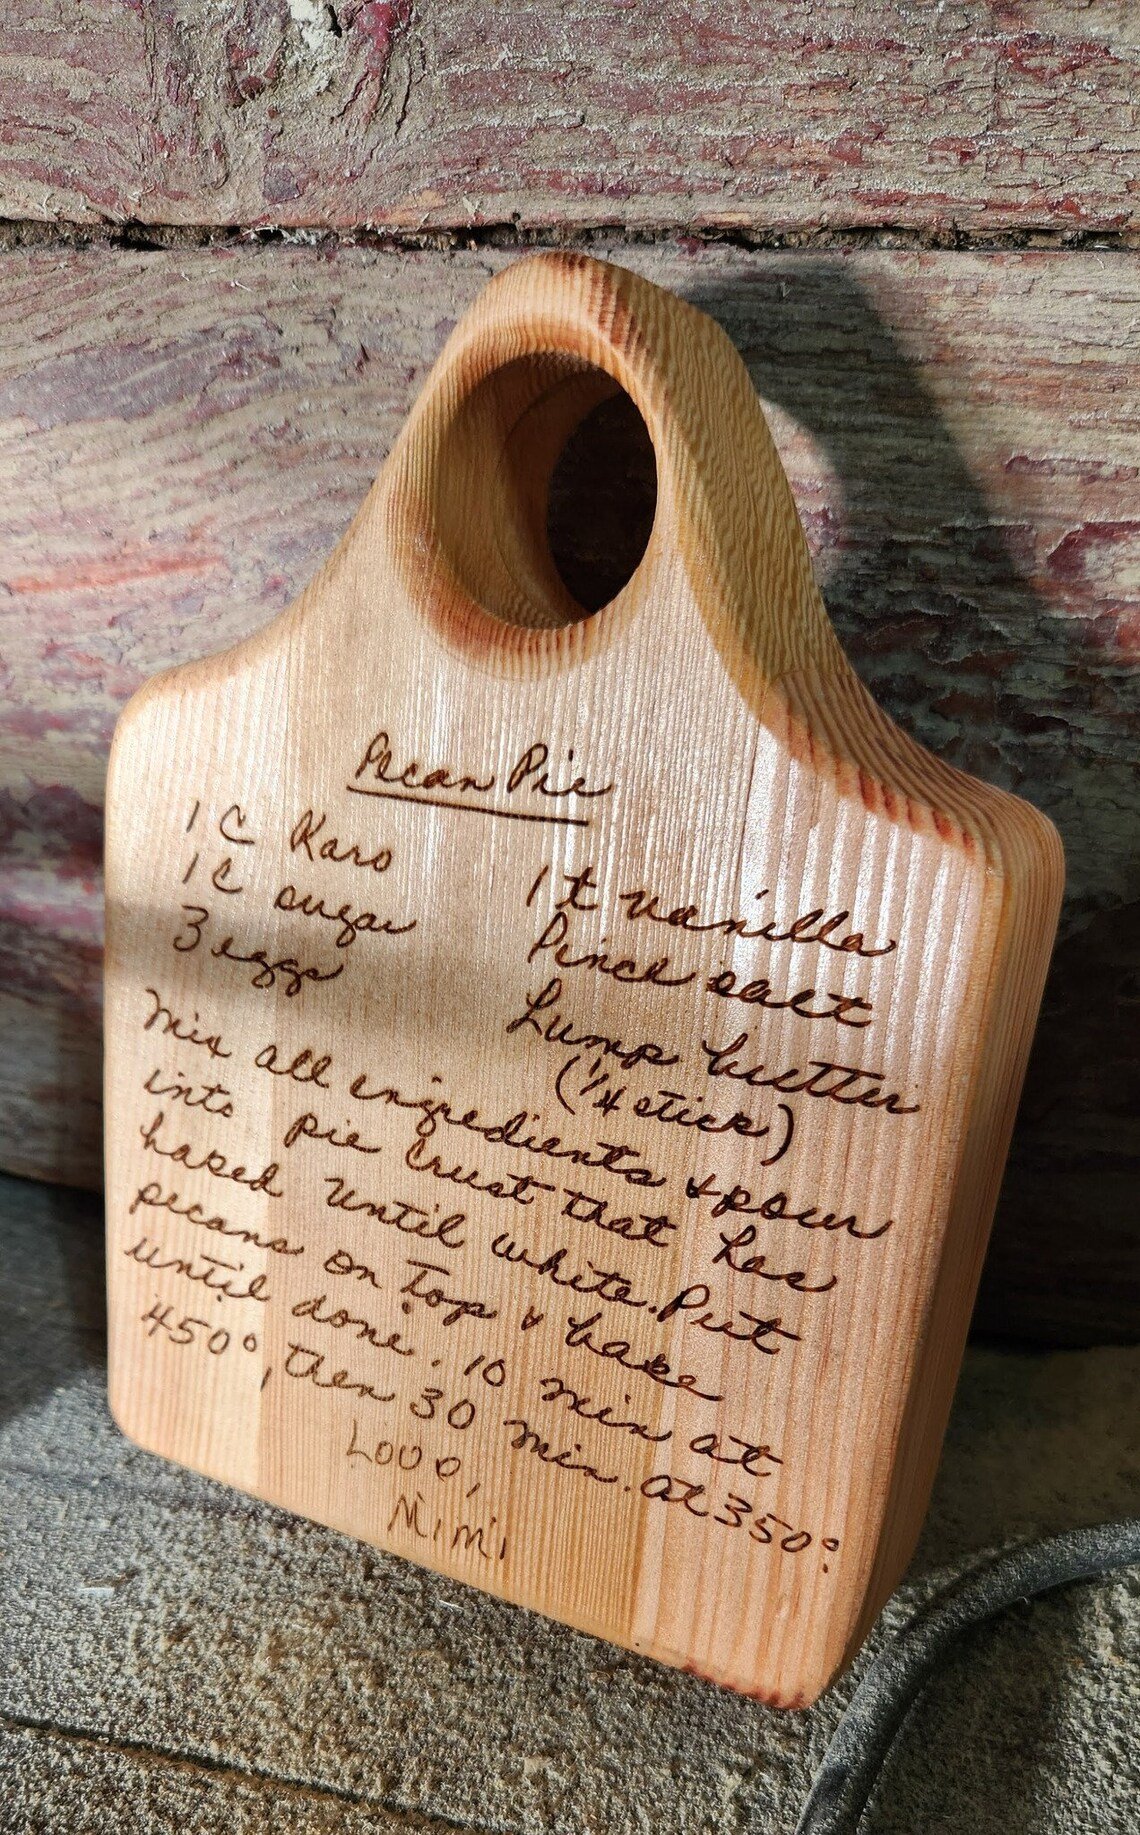 Pecan Pie
1 C Karo
1 C sugar
3 eggs
1 t vanilla
Pinch salt
Lump butter
(1/4 stick)
Mix all ingredients & pour
into pie crust that has
baked until white. Put
pecans on top & bake
until done. 10 min at
450°, then 30 min. at 350°.
Love,
Mimi